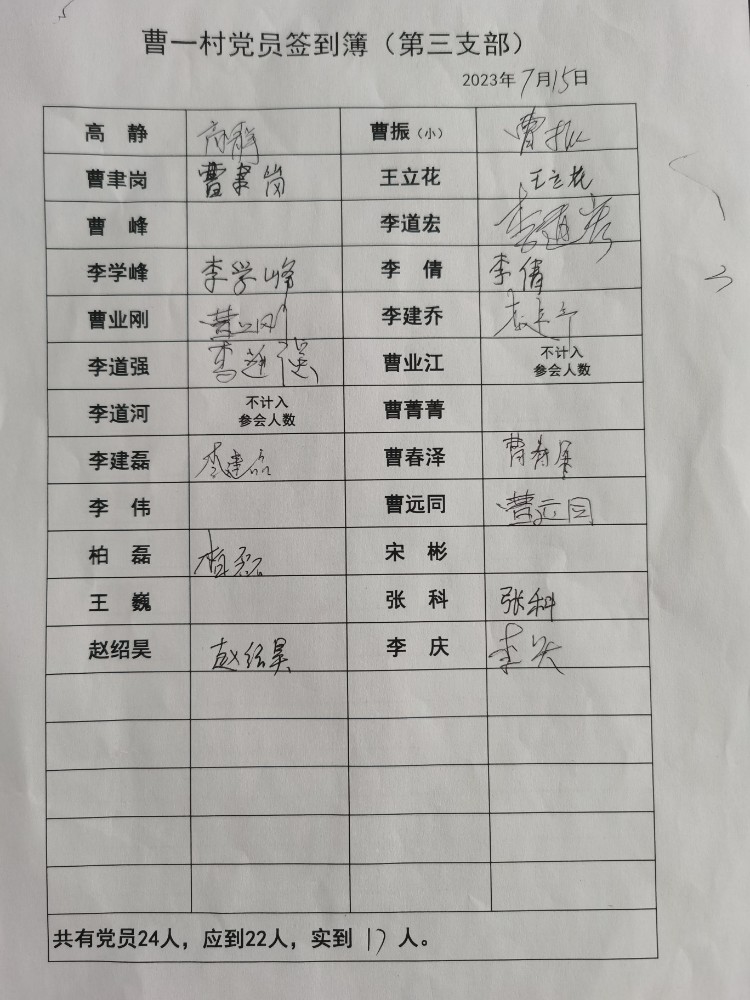 曹一村党员签到簿（第三支部）
2023年7月15日
高 静 高静 曹振（小） 曹振
曹聿岗 曹聿岗 王立花 王立花
曹 峰 李道宏 李道宏
李学峰 李学峰 李 倩 李倩
曹业刚 曹业刚 李建乔 李建乔
李道强 李道强 曹业江 不计入
参会人数
李道河 不计入 曹菁菁
参会人数
李建磊 李建磊 曹春泽 曹春泽
李 伟 曹远同 曹远同
柏 磊 柏磊 宋 彬
王 巍 张 科 张科
赵绍昊 赵绍昊 李 庆 李庆
共有党员24人，应到22人，实到 17 人。